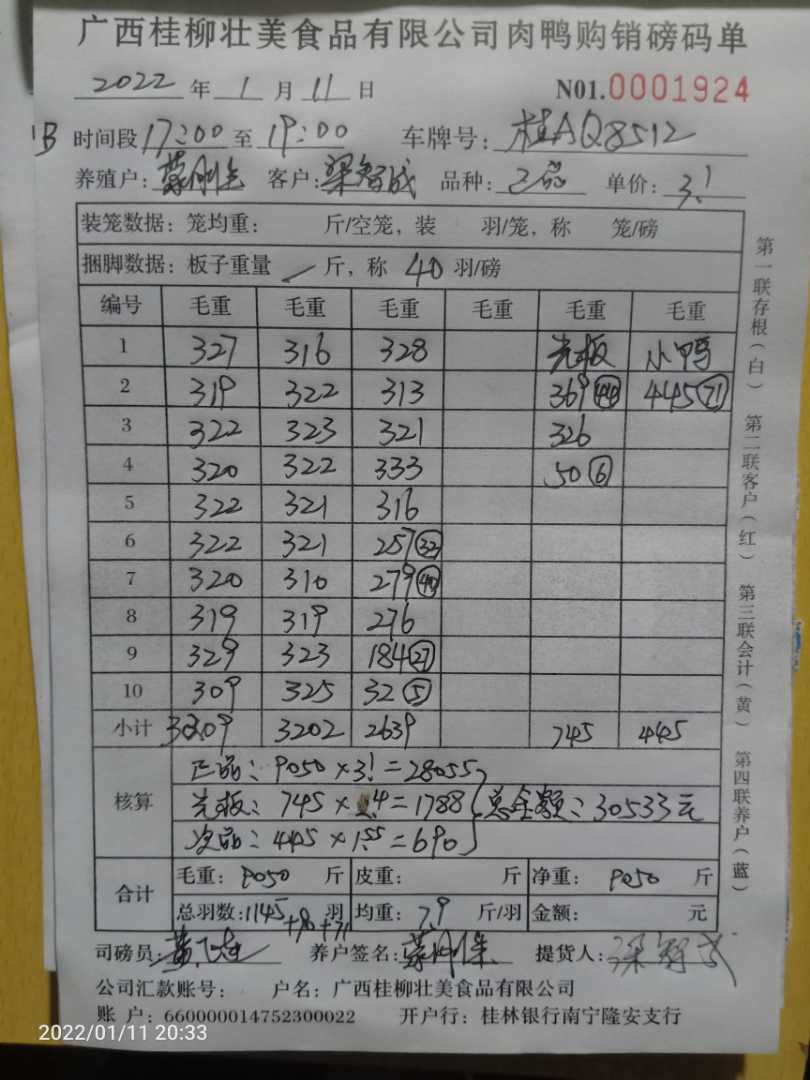 广西桂柳壮美食品有限公司肉鸭购销磅码单
2022 年 1 月 11 日 N01.0001924
B 时间段 17:00 至 19:00 车牌号: 桂AQ8512
养殖户: 客户: 梁智成 品种: 正品 单价: 3.1
装笼数据: 笼均重: 斤/空笼, 装 羽/笼, 称 笼/磅
捆脚数据: 板子重量 斤, 称 40 羽/磅
编号 毛重 毛重 毛重 毛重 毛重 毛重
1 327 316 328 光板 小鸭
2 319 322 313 369 (44) 445 (71)
3 322 323 321 326
4 320 322 333 50 (6)
5 322 321 316
6 322 321 257 (32)
7 320 310 279 (40)
8 319 319 276
9 329 323 184 (27)
10 309 325 32 (5)
小计 3209 3202 2639 745 445
核算
正品: 9050 × 3.1 = 28055
光板: 745 × 2.4 = 1788 总金额: 30533元
次品: 445 × 1.55 = 690
合计
毛重: 9050 斤 皮重: 斤 净重: 9050 斤
总羽数: 1145 +90 +71 羽 均重: 7.9 斤/羽 金额: 元
司磅员: 养户签名: 提货人: 梁智成
公司汇款账号: 户名: 广西桂柳壮美食品有限公司
账 户: 660000014752300022 开户行: 桂林银行南宁隆安支行
第一联存根(白) 第二联客户(红) 第三联会计(黄) 第四联养户(蓝)
2022/01/11 20:33